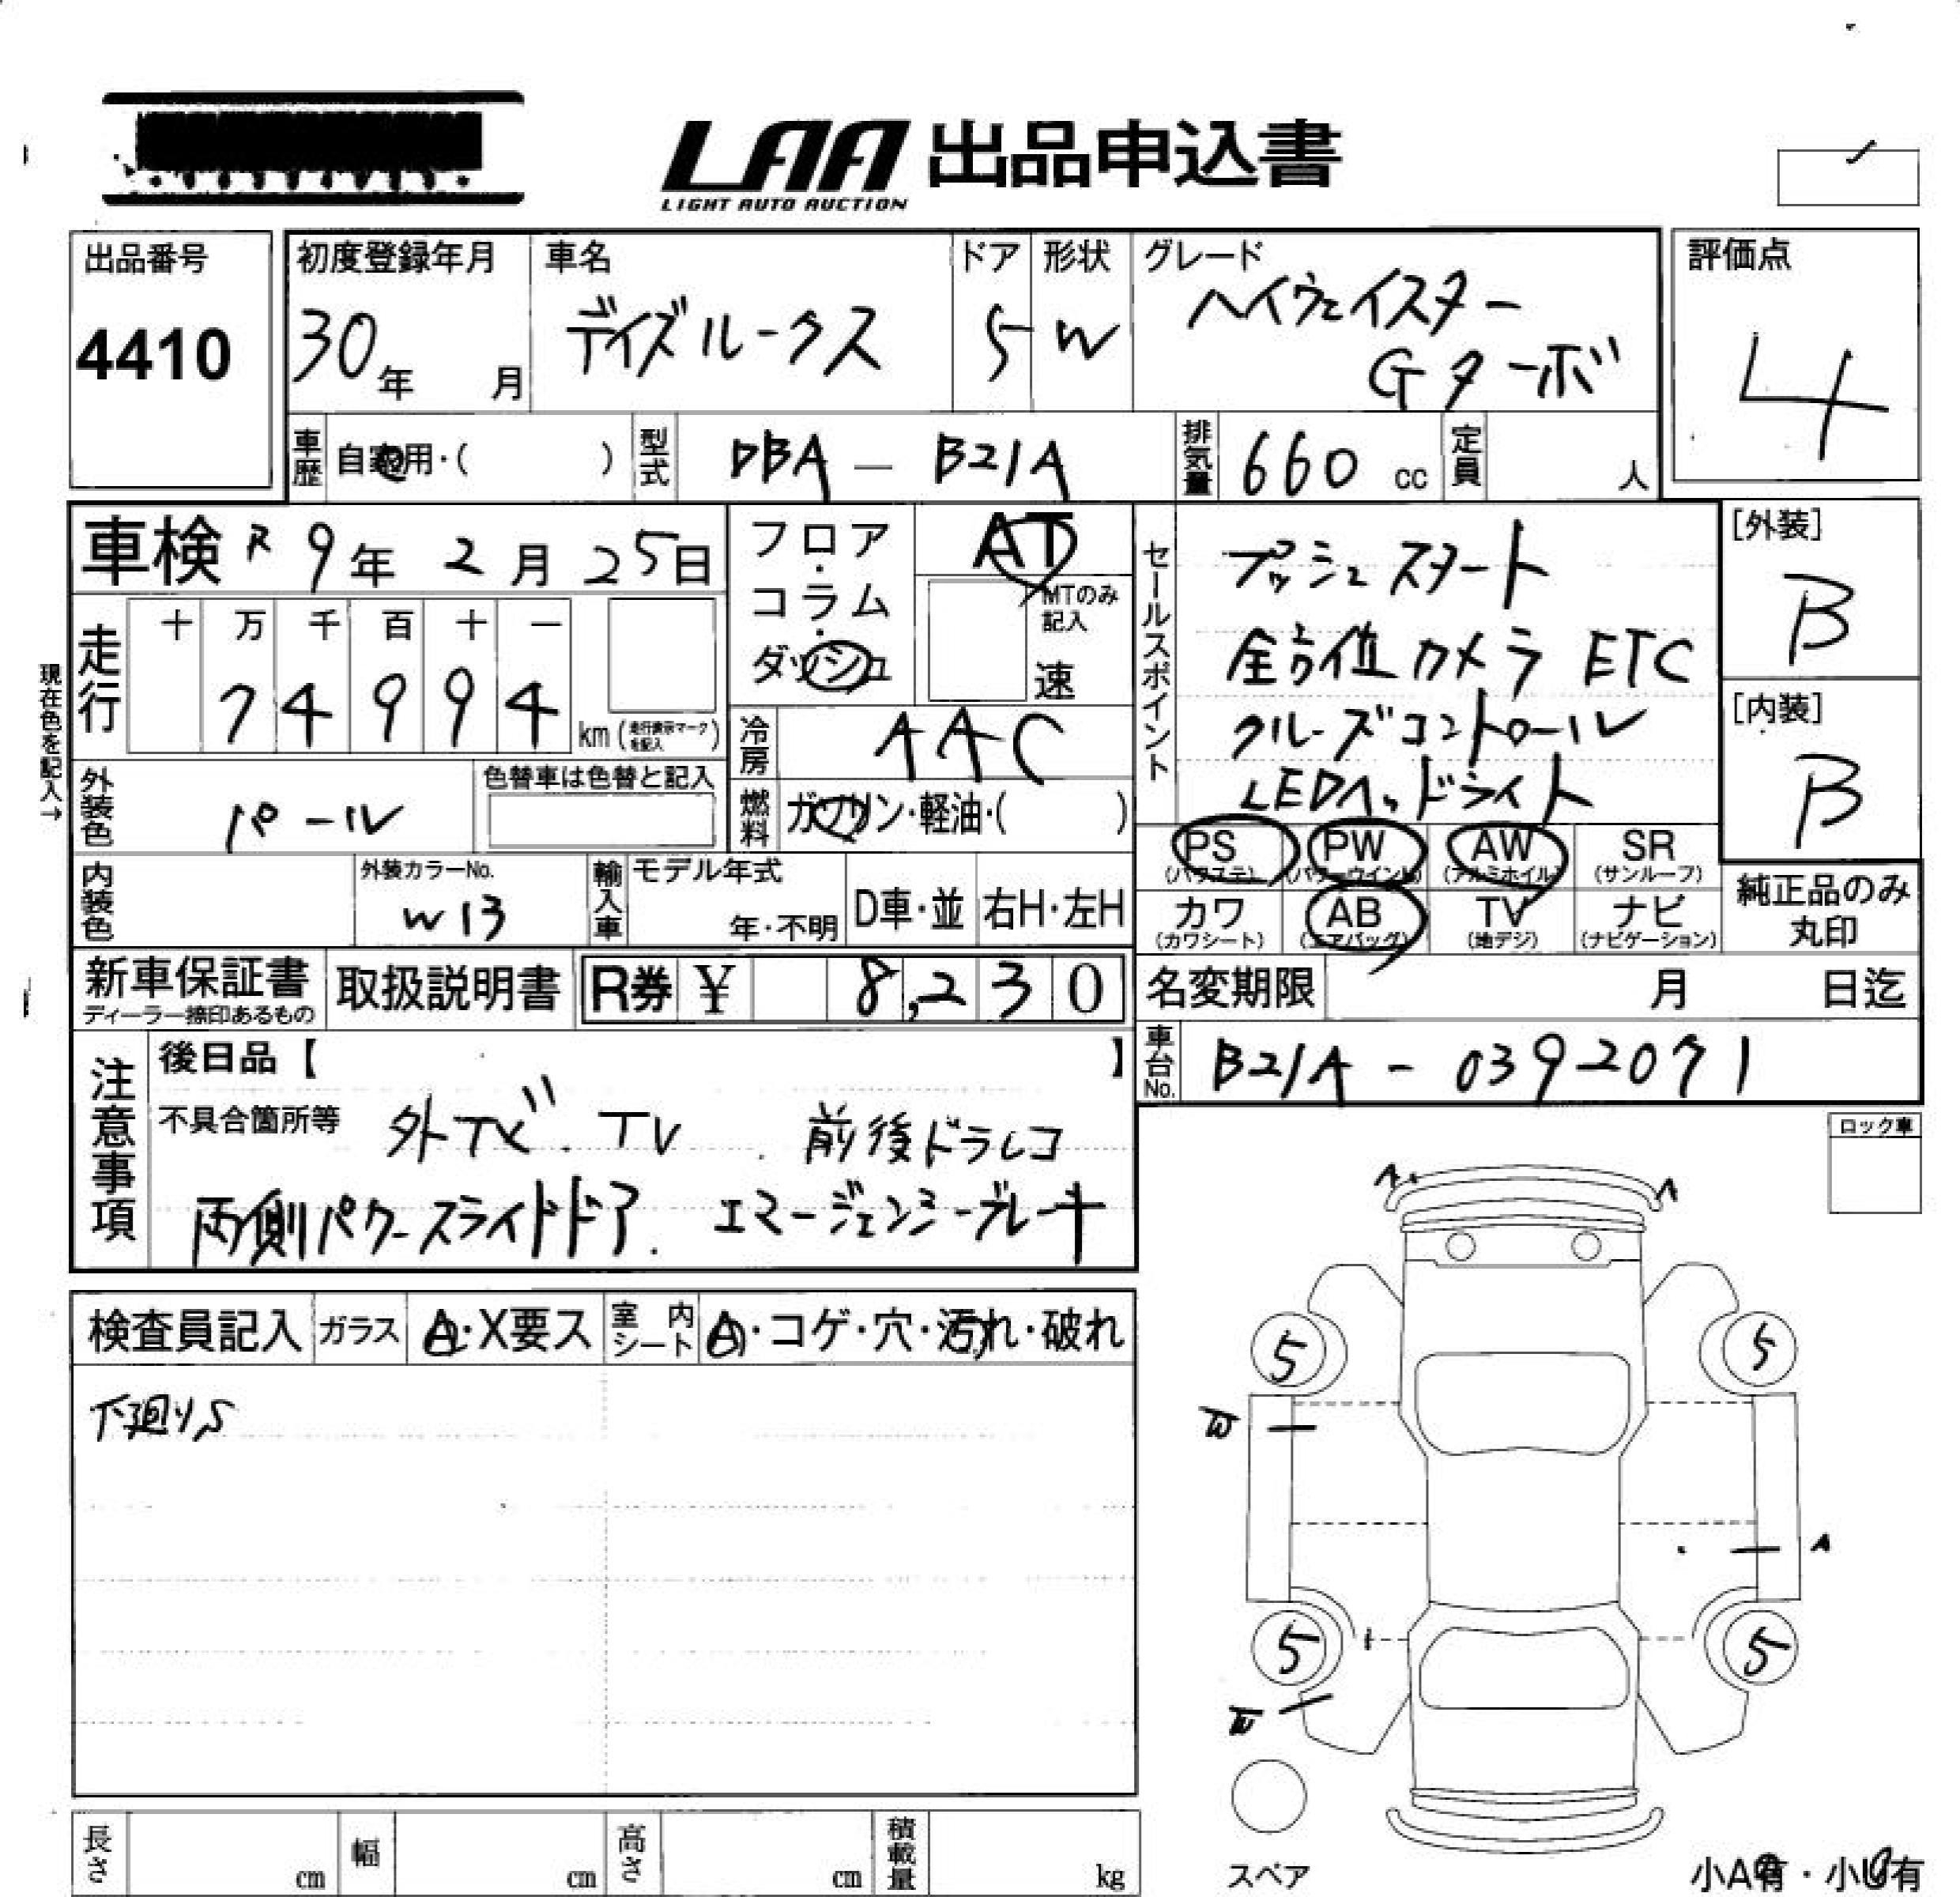 LAA 出品申込書
LIGHT AUTO AUCTION
出品番号
4410
初度登録年月
30年 月
車名
デイズルークス
ドア
5
形状
W
グレード
ハイウェイスター
Gターボ
評価点
4
車歴
自家用・( )
型式
DBA - B21A
排気量
660 cc
定員
人
車検 R 9年 2月 25日
フロア・コラム・ダッシュ
AT
MTのみ記入
速
セールスポイント
プッシュスタート
全方位カメラ ETC
クルーズコントロール
LEDヘッドライト
[外装]
B
[内装]
B
現在色を記入→
走行
十 万 千 百 十 一
7 4 9 9 4
km (走行表示マークを記入)
冷房
AAC
外装色
パール
色替車は色替と記入
燃料
ガソリン・軽油・( )
内装色
外装カラーNo.
W13
輸入車
モデル年式
年・不明
D車・並
右H・左H
PS
(パワステ)
PW
(パワーウインド)
AW
(アルミホイル)
SR
(サンルーフ)
カワ
(カワシート)
AB
(エアバッグ)
TV
(地デジ)
ナビ
(ナビゲーション)
純正品のみ
丸印
新車保証書
ディーラー捺印あるもの
取扱説明書
R券 ¥ 8,230
名変期限 月 日迄
車台No.
B21A - 0392071
注意事項
後日品【 】
不具合箇所等
外ナビ. TV . 前後ドラレコ
両側パワースライドドア. エマージェンシーブレーキ
ロック車
A A
検査員記入
ガラス
A・X要ス
室内シート
A・コゲ・穴・汚れ・破れ
下廻りS
5 5
W
A
5 5
W
スペア
長さ cm
幅 cm
高さ cm
積載量 kg
小A有・小U有